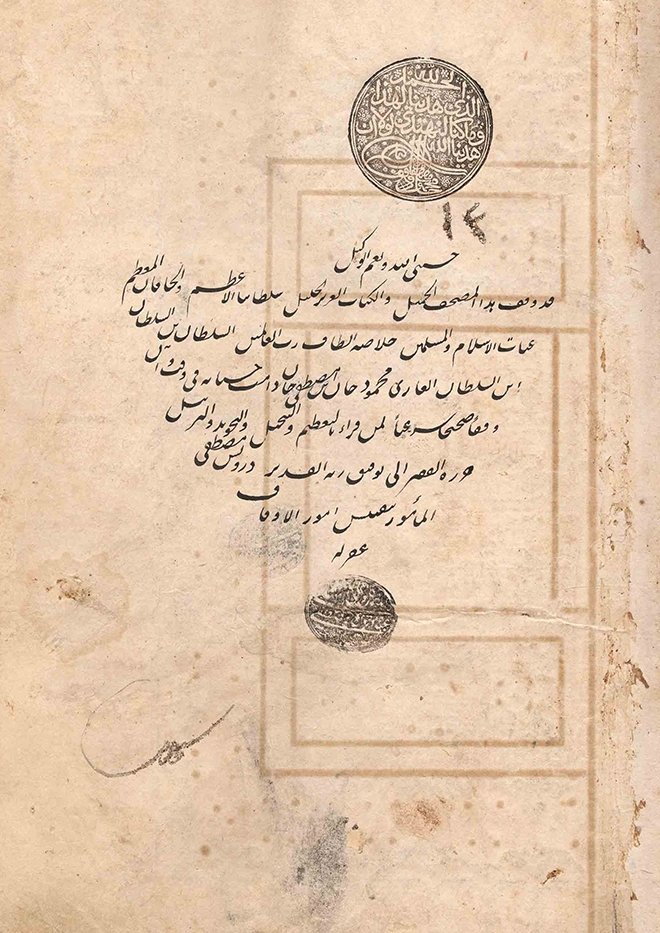 الحمد لله
الذي هدينا لهذا
وما كنا لنهتدي لولا ان
هدينا الله
١٤
حسبي الله ونعم الوكيل
قد وقف هذا المصحف الجميل والكتاب العزيز الجليل سلطاننا الاعظم والخاقان المعظم
غياث الاسلام والمسلمين خلاصة الطاف رب العالمين السلطان بن السلطان
ابن السلطان الغازي محمود خان بن مصطفى خان دامت حسناته في
وقفا صحيحا شرعيا لمن قراء بالتعظيم والتبجيل والتجويد والترتيل
حرره الفقير الى توفيق ربه القدير درويش مصطفى
المأمور بتفتيش امور الاوقاف
غفر له